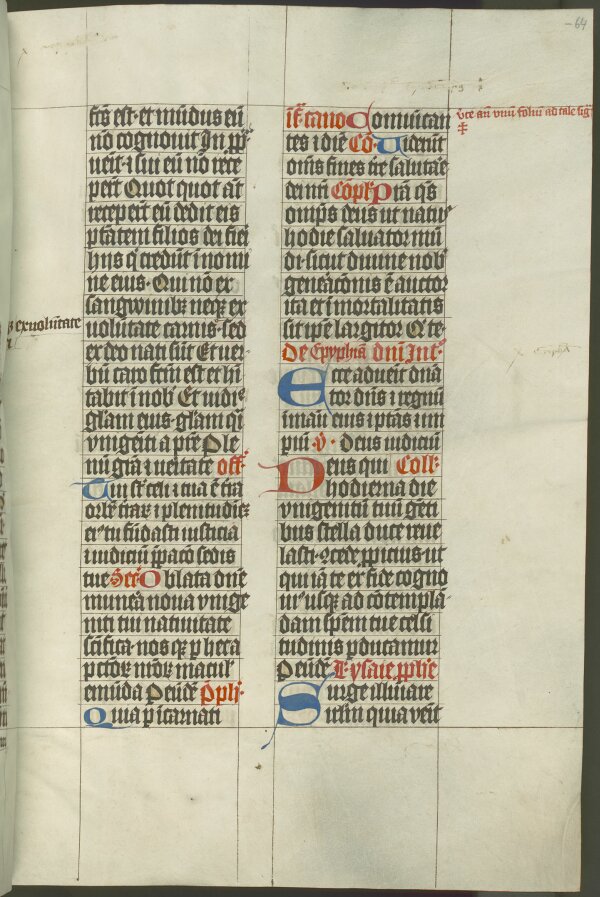 64
fcūs est et mūdus eū
nō cognouit In ꝓp̄
uēit ⁊ sui eū nō rece
perūt Quot quot aūt
receperūt eū dedit eis
ptātem filios dei fieri
hijs q̇ credūt ī nomī
ne eius · Qui nō ex
sangwinibꝫ neqꝫ ex
uolūtate carnis · sed
ex deo nati sūt Et uer
bū caro fcm̄ est et hī
tabit ī nob̄ Et uidiꝰ
glām eius · glām q̄si
vnigeniti a p̄re Ple
nū grā ⁊ ueritate off̄
Tui sūt celi ⁊ tua ē t̄ra
orbē t̄rarꝫ ⁊ plenitudinē
eiꝰ tu fūdasti iusticia
⁊ iudiciū p̄paco̅ sedis
tue Secr̄ Oblata dn̄e
munera noua vnige
niti tui natiuitate
sctīfica · nosqꝫ ꝑ hec a
pctōꝝ nr̄oꝝ macul̄
emūda Per eūdē Ppl̄i
Quia ꝑ īcarnati
ꝫ ex uolūtate
ifͣ cano Comunican
tes ⁊ diē Cō Viderūt
om̄s fines t̄re salutare
dei nr̄i Cōpl̄ Prā q̄s
omp̄s deus ut natuꝰ
hodie saluator mū
di · sicut diuine nob̄
gen̄acōnis ē auctor
ita et īmortalitatis
sit ip̄e largitor Q̇ te
De Epyphīa dn̄i Int̄
Ecce aduēit dn̄a
tor dn̄s ⁊ regnū
ī manu eius ⁊ ptās ⁊ im
piū · v̄ · Deus iudiciū
Deus qui Coll̄
hodierna die
vnigenitū tuū gēti
bus stella duce reue
lasti · ꝯcede ꝓpicius · ut
qui iā te ex fide cogno
uimꝰ usqꝫ ad cōtempla
dam spēm tue celsi
tudinis ꝑducamur
Per eūdē L ysaie ꝓph̄e
Surge illuīare
ihrlm̄ quia venit
vͤte an̄ vnū foliū ad tale sig̅
‡